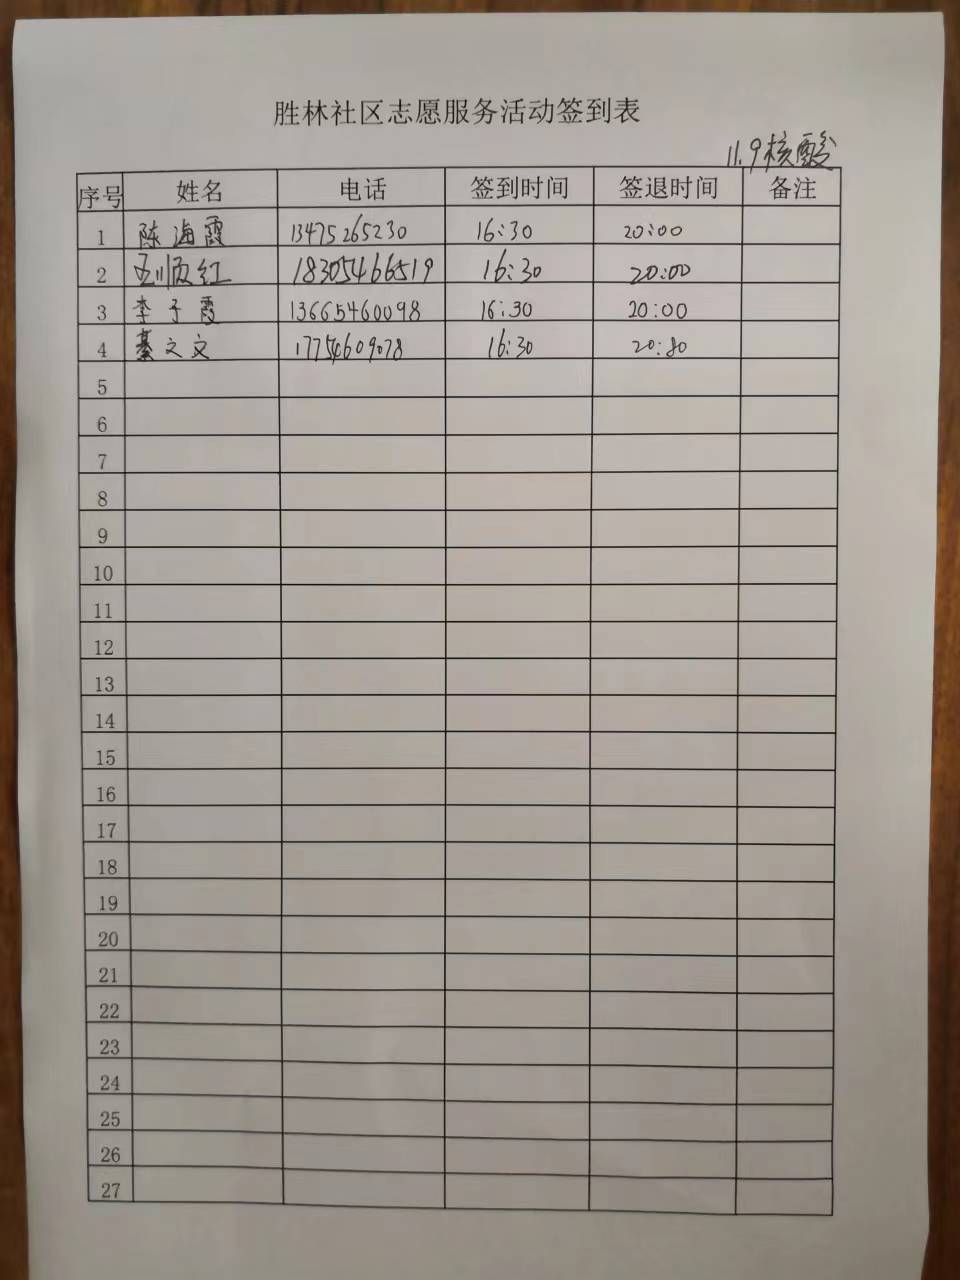 胜林社区志愿服务活动签到表
11.9核酸
序号 姓名 电话 签到时间 签退时间 备注
1 陈海霞 13475265230 16:30 20:00
2 王顺红 18305466519 16:30 20:00
3 李子霞 13665460098 16:30 20:00
4 綦文文 17754609078 16:30
5
6
7
8
9
10
11
12
13
14
15
16
17
18
19
20
21
22
23
24
25
26
27